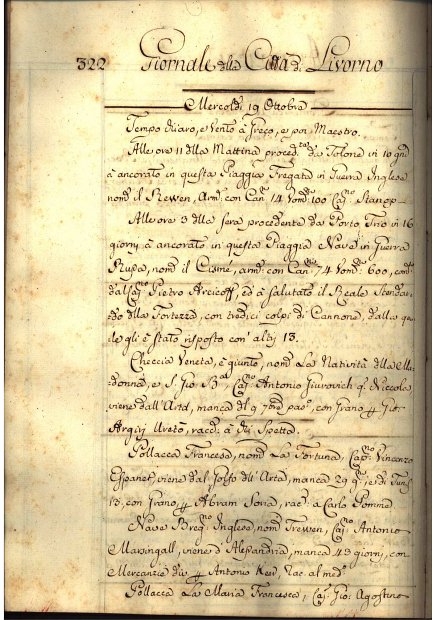 322 Giornale della Città di Livorno
Mercoldì 19 Ottobre
Tempo chiaro, e vento à Greco, e poi Maestro.
Alle ore 11 della Mattina proced.te da Tolone in 10 gni
à ancorato in questa Piaggia Fregata in Guerra Inglese
nom.ta il Rewen, Arm. con Can. 14 Uom. 100 Cap.no Stanop
Alle ore 3 della sera procedente da Porto Trio in 16
giorni à ancorato in questa Piaggia Nave in Guerra
Rusa, nom. il Cismé, arm. con Can.ni 74 Uom. 600, com.
dal Cap.no Pietro Arcicoff, ed à salutato il Reale Stendar-
do della Fortezza, con tredici colpi di Cannone, dalla qua-
le gli è stato risposto con altri 13.
Checcia Veneta, è giunto, nom. La Natività della Ma-
donna, e S. Gio. Cap. Antonio Giurovich q. Niccola
viene dall'Arta, manca dl 9 7bre pas.o, con Grano Gio:
Argiri Ureto, racc. à di Spetta.
Pollacca Francese, nom. La Fortuna, Cap.no Vincenzo
Espanet, viene dal Golfo dell'Arta, manca 29 g.ni, e di
13, con Grano, Abram Soria, racc. a Carlo
Nave Inglese, nom. Trewen, Cap.no Antonio
Marsingall, viene d'Alesandria, manca 49 giorni, con
Mercanzie div. Antonio rac. al med.o
Pollacca La Maria Francesca, Cap. Gio: Agostino